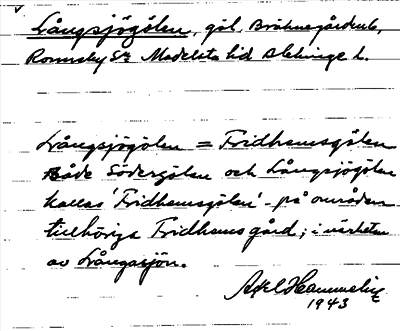 Långsjögölen, göl, Brahnegårdenl,
Ronneby Sn Medelsta hd Blekinge l.
Långsjögölen = Fridhemsgölen
Både Södergölen och Långsjögölen
kallas 'Fridhemsgölen' - på områden
tillhöriga Fridhems gård; i närheten
av Långasjön.
Axel
1943